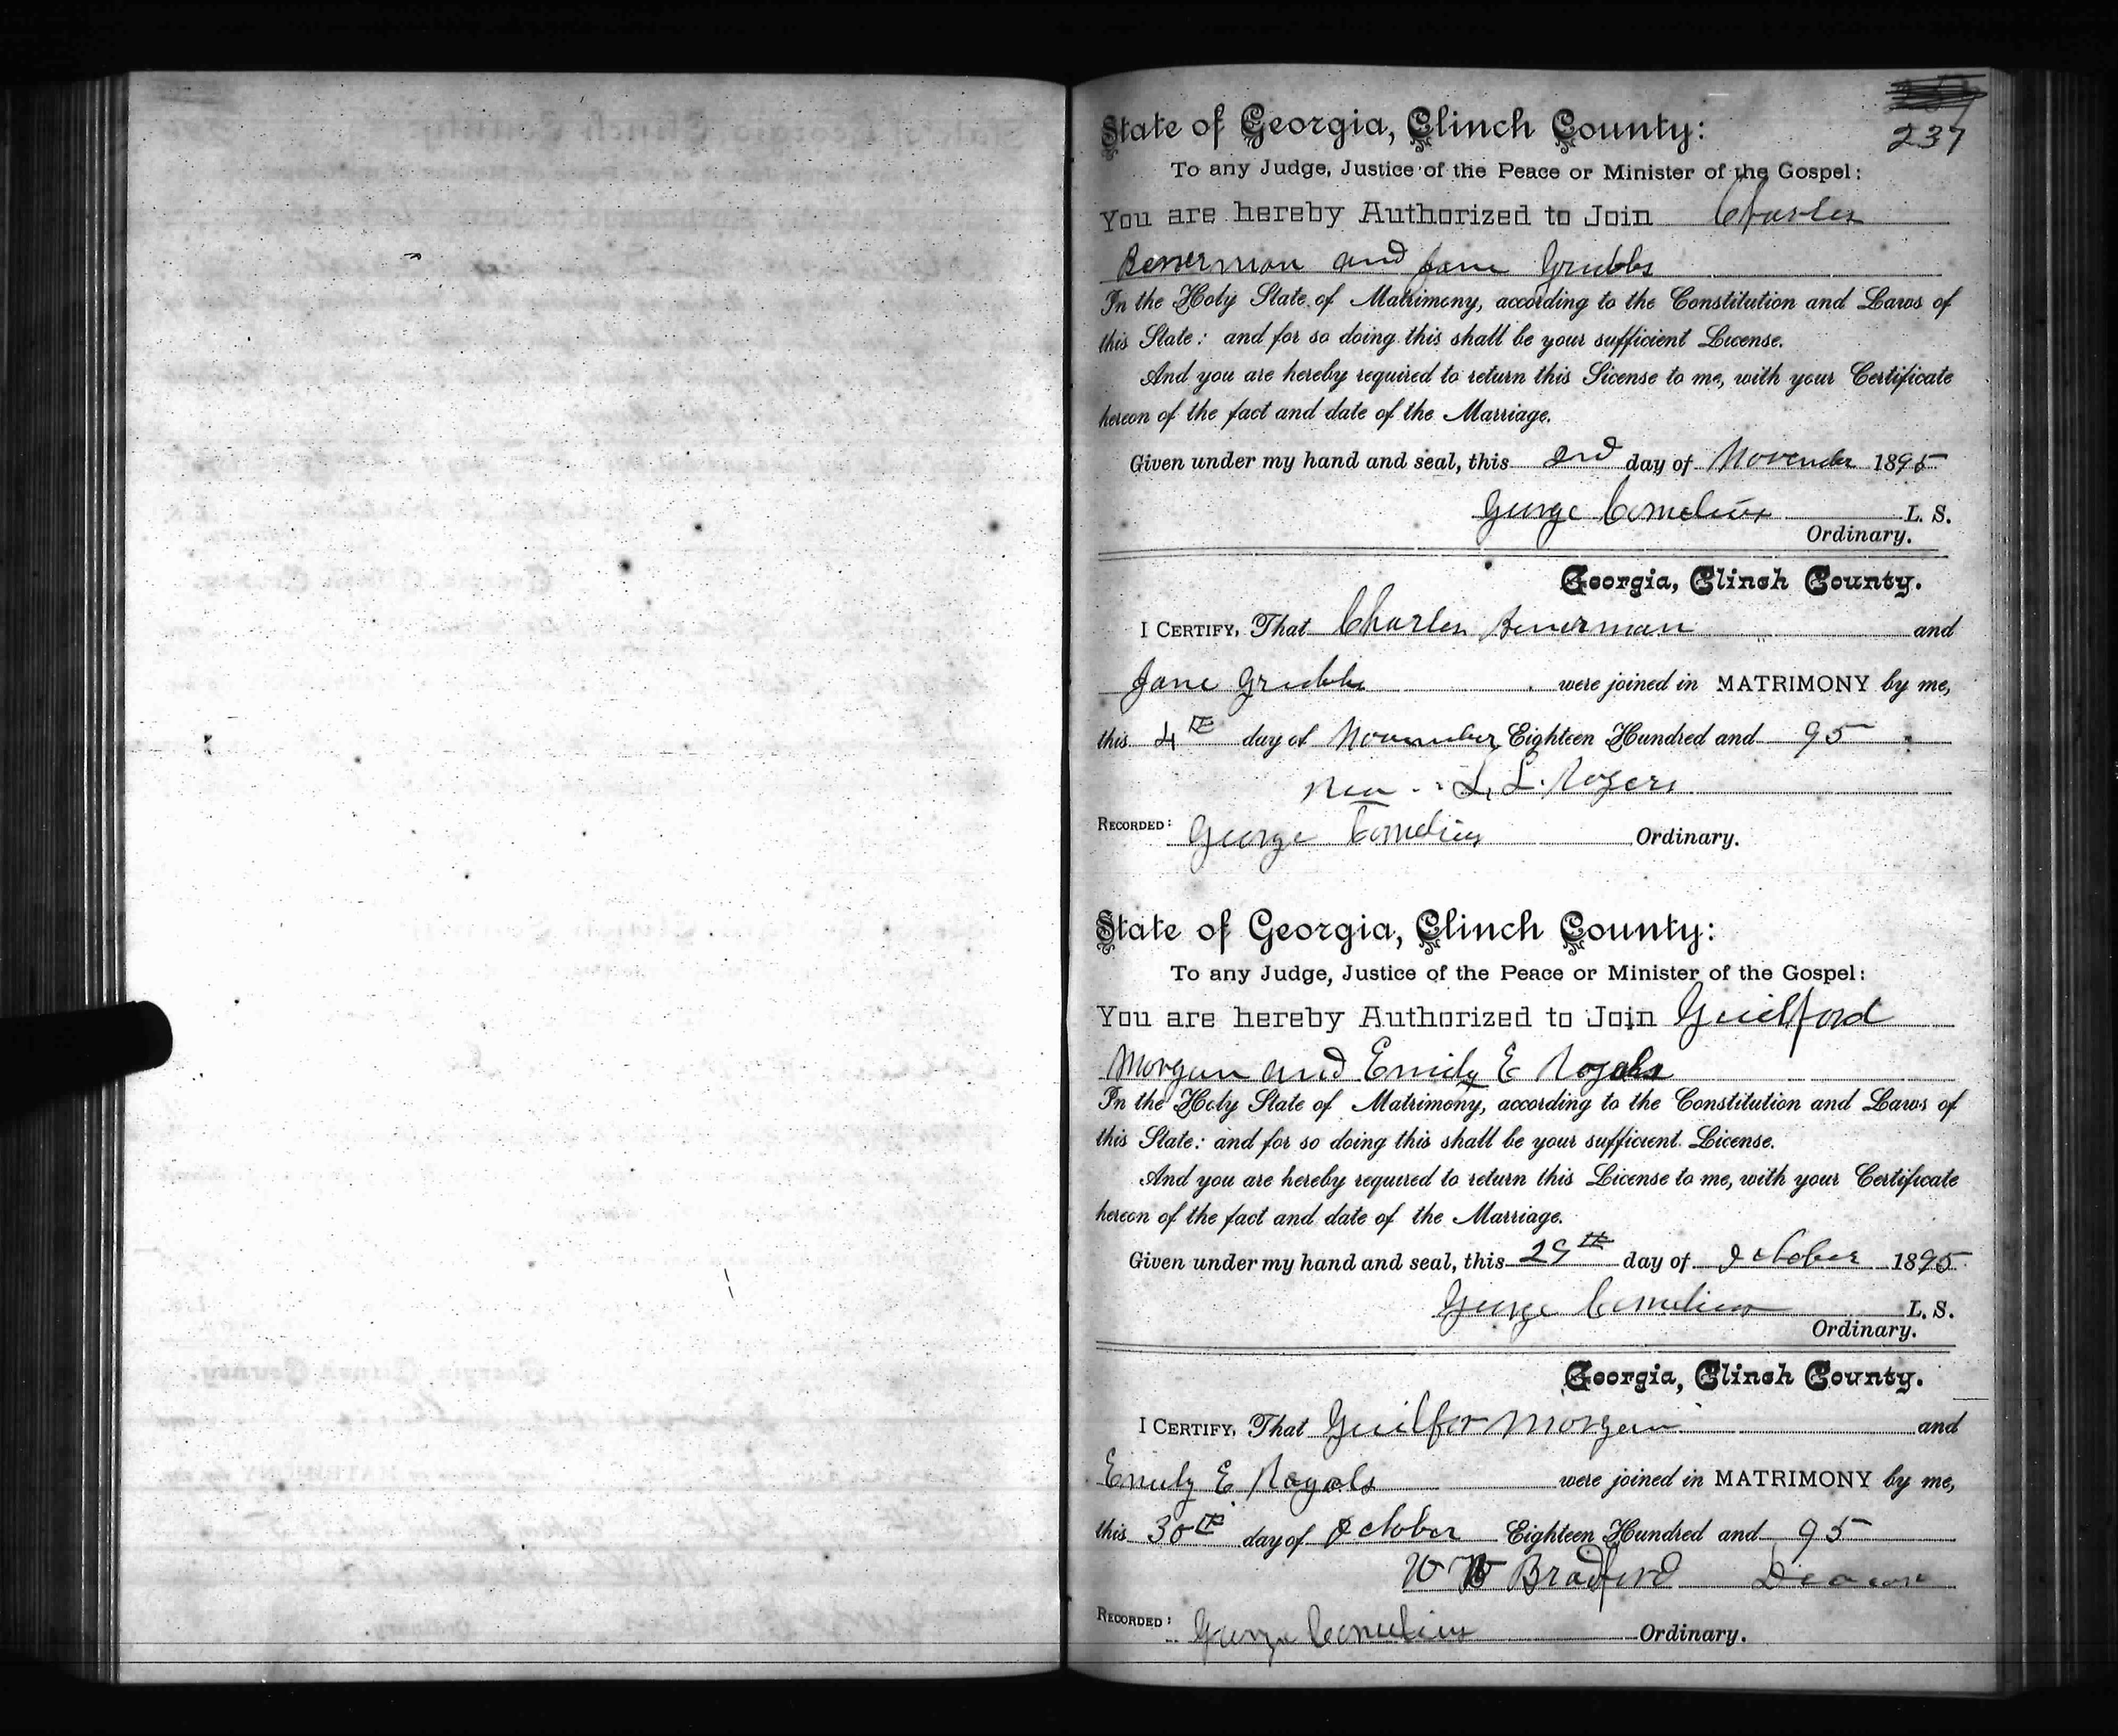 237
State of Georgia, Clinch County:
To any Judge, Justice of the Peace or Minister of the Gospel:
You are hereby Authorized to Join Charles
Benerman and Jane Grubbs
In the Holy State of Matrimony, according to the Constitution and Laws of
this State: and for so doing this shall be your sufficient License.
And you are hereby required to return this License to me, with your Certificate
hereon of the fact and date of the Marriage.
Given under my hand and seal, this 2nd day of November 1895
George Cornelius L. S.
Ordinary.
Georgia, Clinch County.
I CERTIFY, That Charles Benerman and
Jane Grubbs were joined in MATRIMONY by me,
this 4th day of November Eighteen Hundred and 95
L. L. Rogers
RECORDED: George Cornelius Ordinary.
State of Georgia, Clinch County:
To any Judge, Justice of the Peace or Minister of the Gospel:
You are hereby Authorized to Join Guilford
Morgan and Emily E Royals
In the Holy State of Matrimony, according to the Constitution and Laws of
this State: and for so doing this shall be your sufficient License.
And you are hereby required to return this License to me, with your Certificate
hereon of the fact and date of the Marriage.
Given under my hand and seal, this 29th day of October 1895
George Cornelius L. S.
Ordinary.
Georgia, Clinch County.
I CERTIFY, That Guilfor Morgan and
Emily E. Royals were joined in MATRIMONY by me,
this 30th day of October Eighteen Hundred and 95
W W Bradford Deacon
RECORDED: George Cornelius Ordinary.